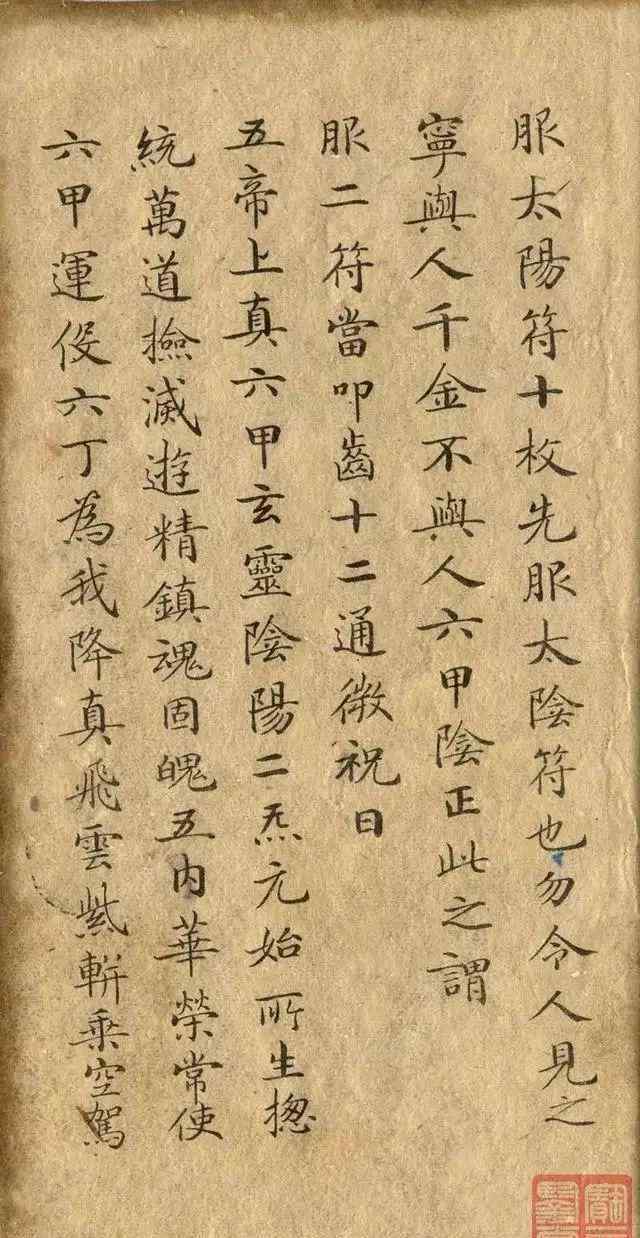 服太陽符十枚先服太陰符也勿令人見之
寧與人千金不與人六甲陰正此之謂
服二符當叩齒十二通微祝曰
五帝上真六甲玄靈陰陽二炁元始所生揔
統萬道撿滅遊精鎮魂固魄五內華榮常使
六甲運役六丁為我降真飛雲紫軿乗空駕